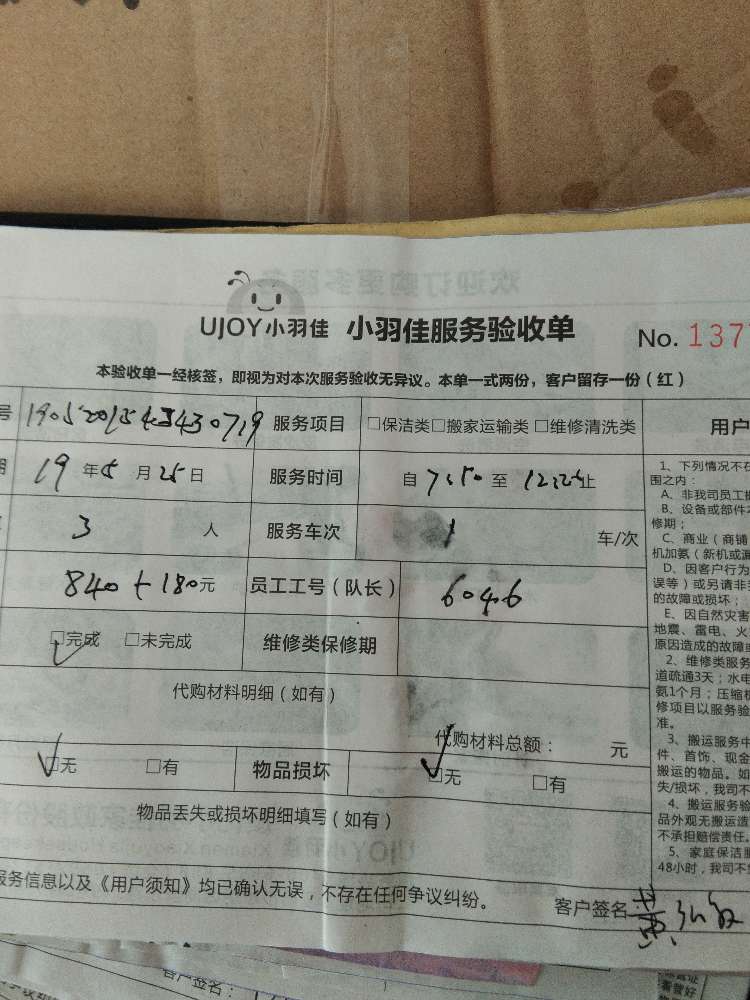 UJOY小羽佳 小羽佳服务验收单
No. 137
本验收单一经核签，即视为对本次服务验收无异议。本单一式两份，客户留存一份（红）
号 服务项目 □保洁类□搬家运输类 □维修清洗类 用户
19年5月25日 服务时间 自7:50至 止
3 人 服务车次 1 车/次
840+180元 员工工号（队长） 6046
□完成 □未完成 维修类保修期
代购材料明细（如有）
代购材料总额： 元
□无 □有 物品损坏 □无 □有
物品丢失或损坏明细填写（如有）
服务信息以及《用户须知》均已确认无误，不存在任何争议纠纷。
客户签名 黄
1、下列情况不在
围之内：
A、非我司员工
B、设备或部件
修期；
C、商业（商铺
机加氨（新机或漏
D、因客户行为
误等）或另请非
的故障或损坏；
E、因自然灾害
地震、雷电、火
原因造成的故障或
2、维修类服务
道疏通3天；水电
氨1个月；压缩机
修项目以服务验
准。
3、搬运服务中
件、首饰、现金
搬运的物品。如
失/损坏，我司不
4、搬运服务验
品外观无搬运造
不承担赔偿责任。
5、家庭保洁服
48小时，我司不
客户签名：